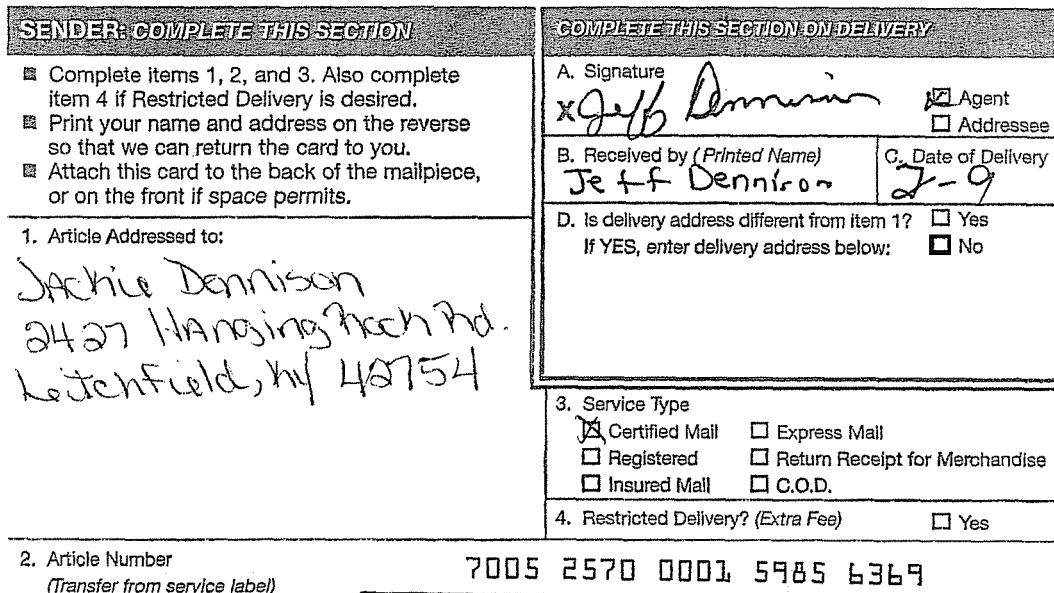 SENDER: COMPLETE THIS SECTION
■ Complete items 1, 2, and 3. Also complete
item 4 if Restricted Delivery is desired.
■ Print your name and address on the reverse
so that we can return the card to you.
■ Attach this card to the back of the mailpiece,
or on the front if space permits.
1. Article Addressed to:
Jackie Dennison
2427 Hanging Rock Rd.
Leitchfield, Ky 42754
COMPLETE THIS SECTION ON DELIVERY
A. Signature
X Jeff Dennison
☑ Agent
☐ Addressee
B. Received by (Printed Name)
Jeff Dennison
C. Date of Delivery
2-9
D. Is delivery address different from item 1? ☐ Yes
If YES, enter delivery address below: ☐ No
3. Service Type
☒ Certified Mail ☐ Express Mail
☐ Registered ☐ Return Receipt for Merchandise
☐ Insured Mail ☐ C.O.D.
4. Restricted Delivery? (Extra Fee) ☐ Yes
2. Article Number
(Transfer from service label)
7005 2570 0001 5985 6369